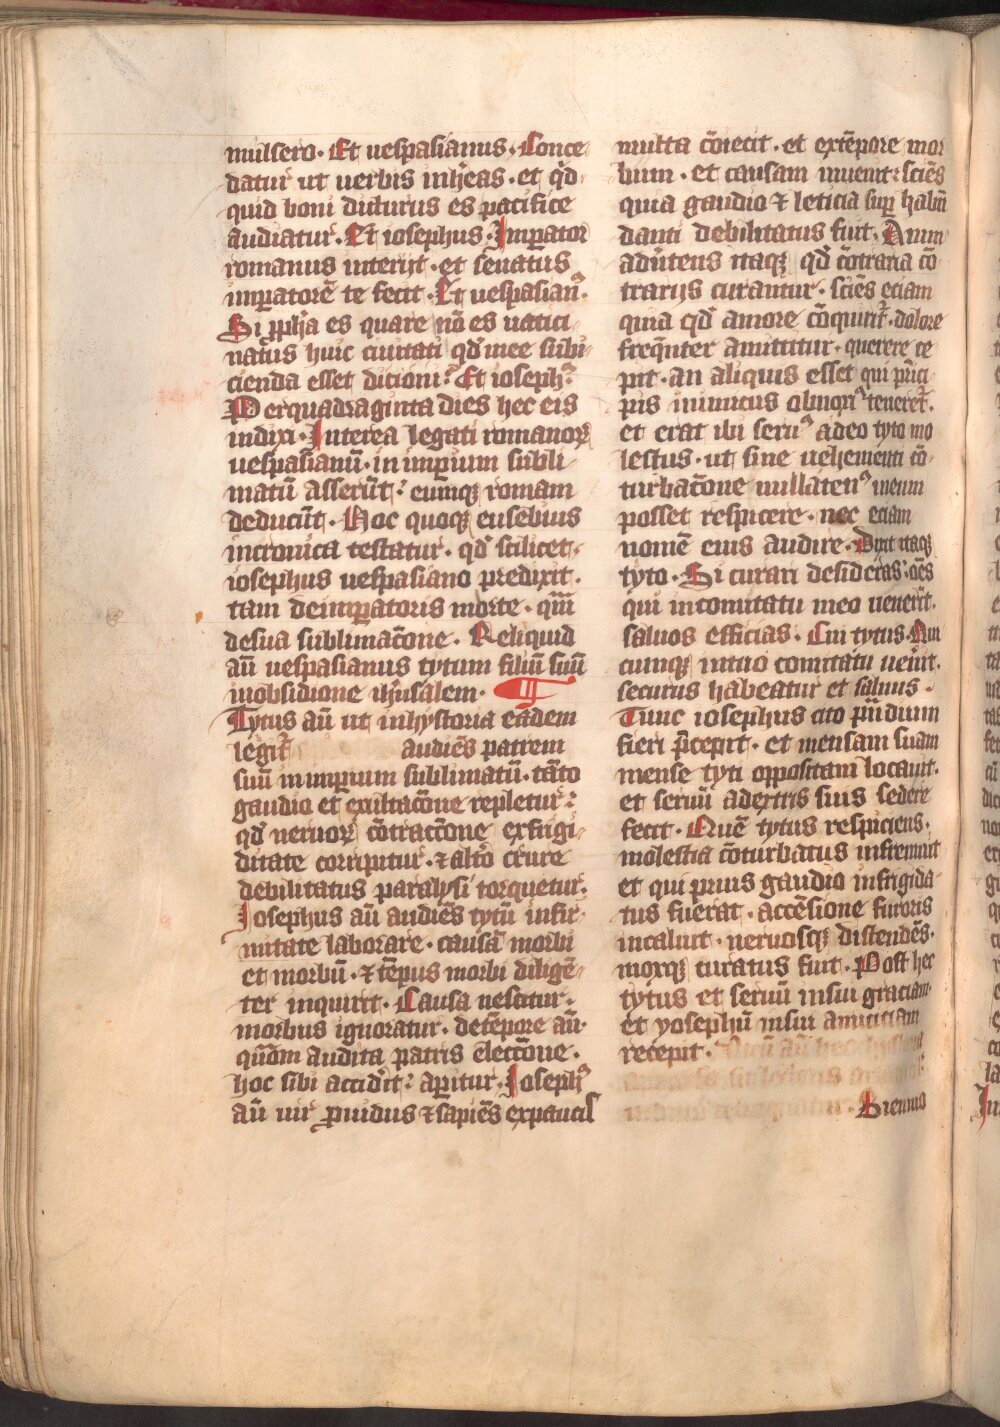 mulsero. Et uespasianus. Conce
datur ut uerbis inhereas. et qd
quid boni dicturus es pacifice
audiatur. Et iosephus. Imperator
romanus interijt. et senatus
imperatorē te fecit. Et uespasianꝰ.
Si ꝓpha es quare nō es uatici
natus huic ciuitati qd mee subi
cienda esset dicioni? Et iosephꝰ.
Per quadraginta dies hec eis
indixi. Interea legati romanorꝝ
uespasianū. in imperium subli
matū asserūt. eumqꝫ romam
deducūt. Hoc quoqꝫ eusebius
in cronica testatur. qd scilicet.
iosephus uespasiano predixit.
tam de imperatoris morte. qm̄
de sua sublimacōne. Reliquid
aū uespasianus tytum filiū suū
in obsidione ihrusalem.
Tytus aū ut in hystoria eadem
legitr audiēs patrem
suū in imperium sublimatū. tāto
gaudio et exultacōne repletur.
qd neruorꝝ cōtraccōne ex frigi
ditate corripitur. ⁊ altō crure
debilitatus paralysi torquetur.
Iosephus aū audiēs tytū infir
mitate laborare. causā morbi
et morbū. ⁊ tēpus morbi diligē
ter inquirit. Causa nescitur.
morbus ignoratur. de tēpore aū.
quōm audita patris eleccōne.
hoc sibi accidit. aperitur. Iosephꝰ
aū uir ꝓuidus ⁊ sapiēs ex paucis
multa cōiecit. et ex tēpore mor
bum. et causam inuenit. sciēs
quia gaudio ⁊ leticia super habū
danti debilitatus fuit. Anim
aduertens itaqꝫ qd cōtraria cō
trarijs curantur. sciēs eciam
quia qd amore cōquiritr. dolore
frequenter amittitur. querere ce
pit. an aliquis esset qui prīci
pis inimicus obnoxiꝰ teneretr.
et erat ibi seruꝰ adeo tyto mo
lestus. ut sine uehementi cō
turbacōne nullatenꝰ in eum
posset respicere. nec eciam
nomē eius audire. Dixit itaqꝫ
tyto. Si curari desideras. oēs
qui in comitatu meo uenerīt.
saluos efficias. Cui tytus. Qui
cumqꝫ in tuo comitatu uenit.
securus habeatur et saluus.
Tunc iosephus cito prādium
fieri precepit. et mensam suam
mense tyti oppositam locauit.
et seruū a dextris suis sedere
fecit. Quē tytus respiciens.
molestia cōturbatus infremuit
et qui prius gaudio infrigida
tus fuerat. accēsione furoris
incaluit. neruosqꝫ distendēs.
moxqꝫ curatus fuit. Post hec
tytus et seruū in sui graciam.
et yosephū in sui amiticiam
recepit.
Biennio